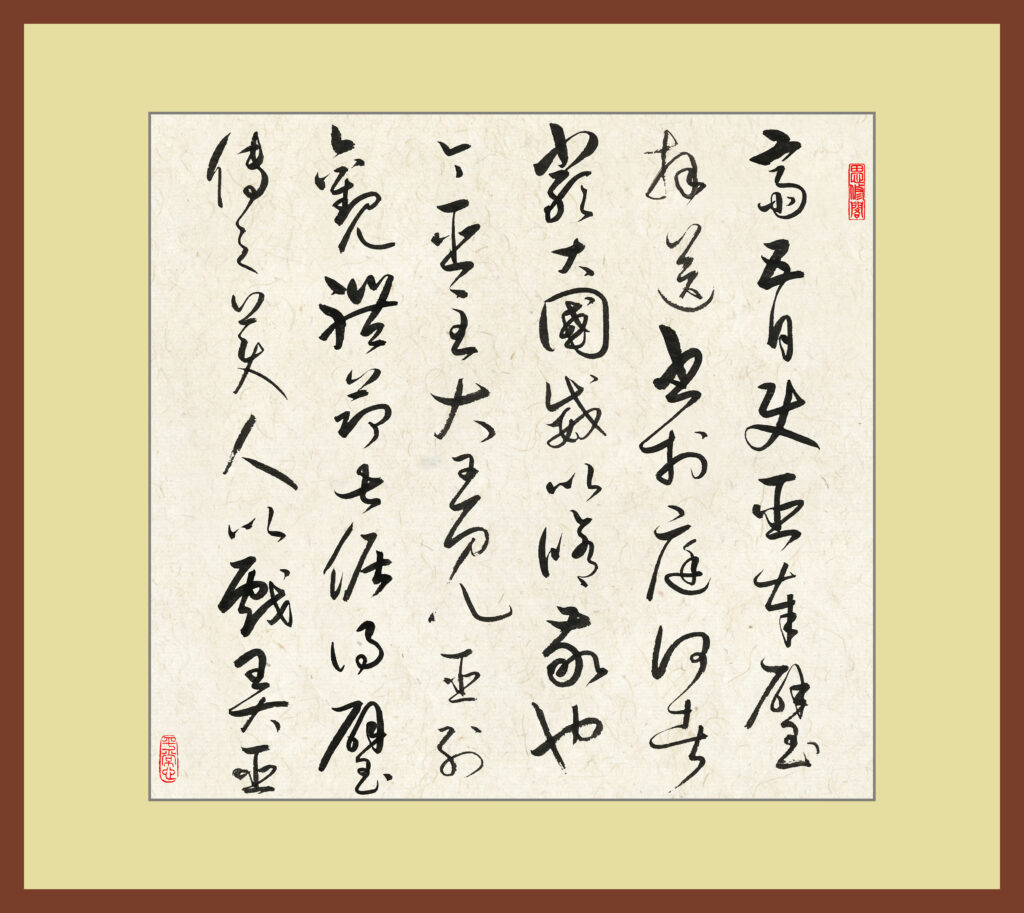 思修閣
齋五日使臣奉璧
拜送書於庭何者
嚴大國威以修敬也
今臣至大王見臣列
觀禮節甚倨得璧
傳之美人以戲弄臣
平常心